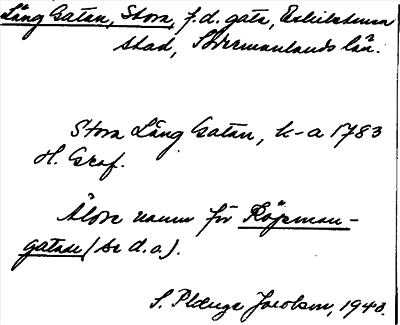 Lång Gatan, Stora, f.d. gata, Eskilstuna
stad, Södermanlands län.
Stora Lång Gatan, k-a 1783
H. Graf.
Äldre namn för Köpman-
gatan (se d.o.).
S. Pldnge Jacobson, 1940.